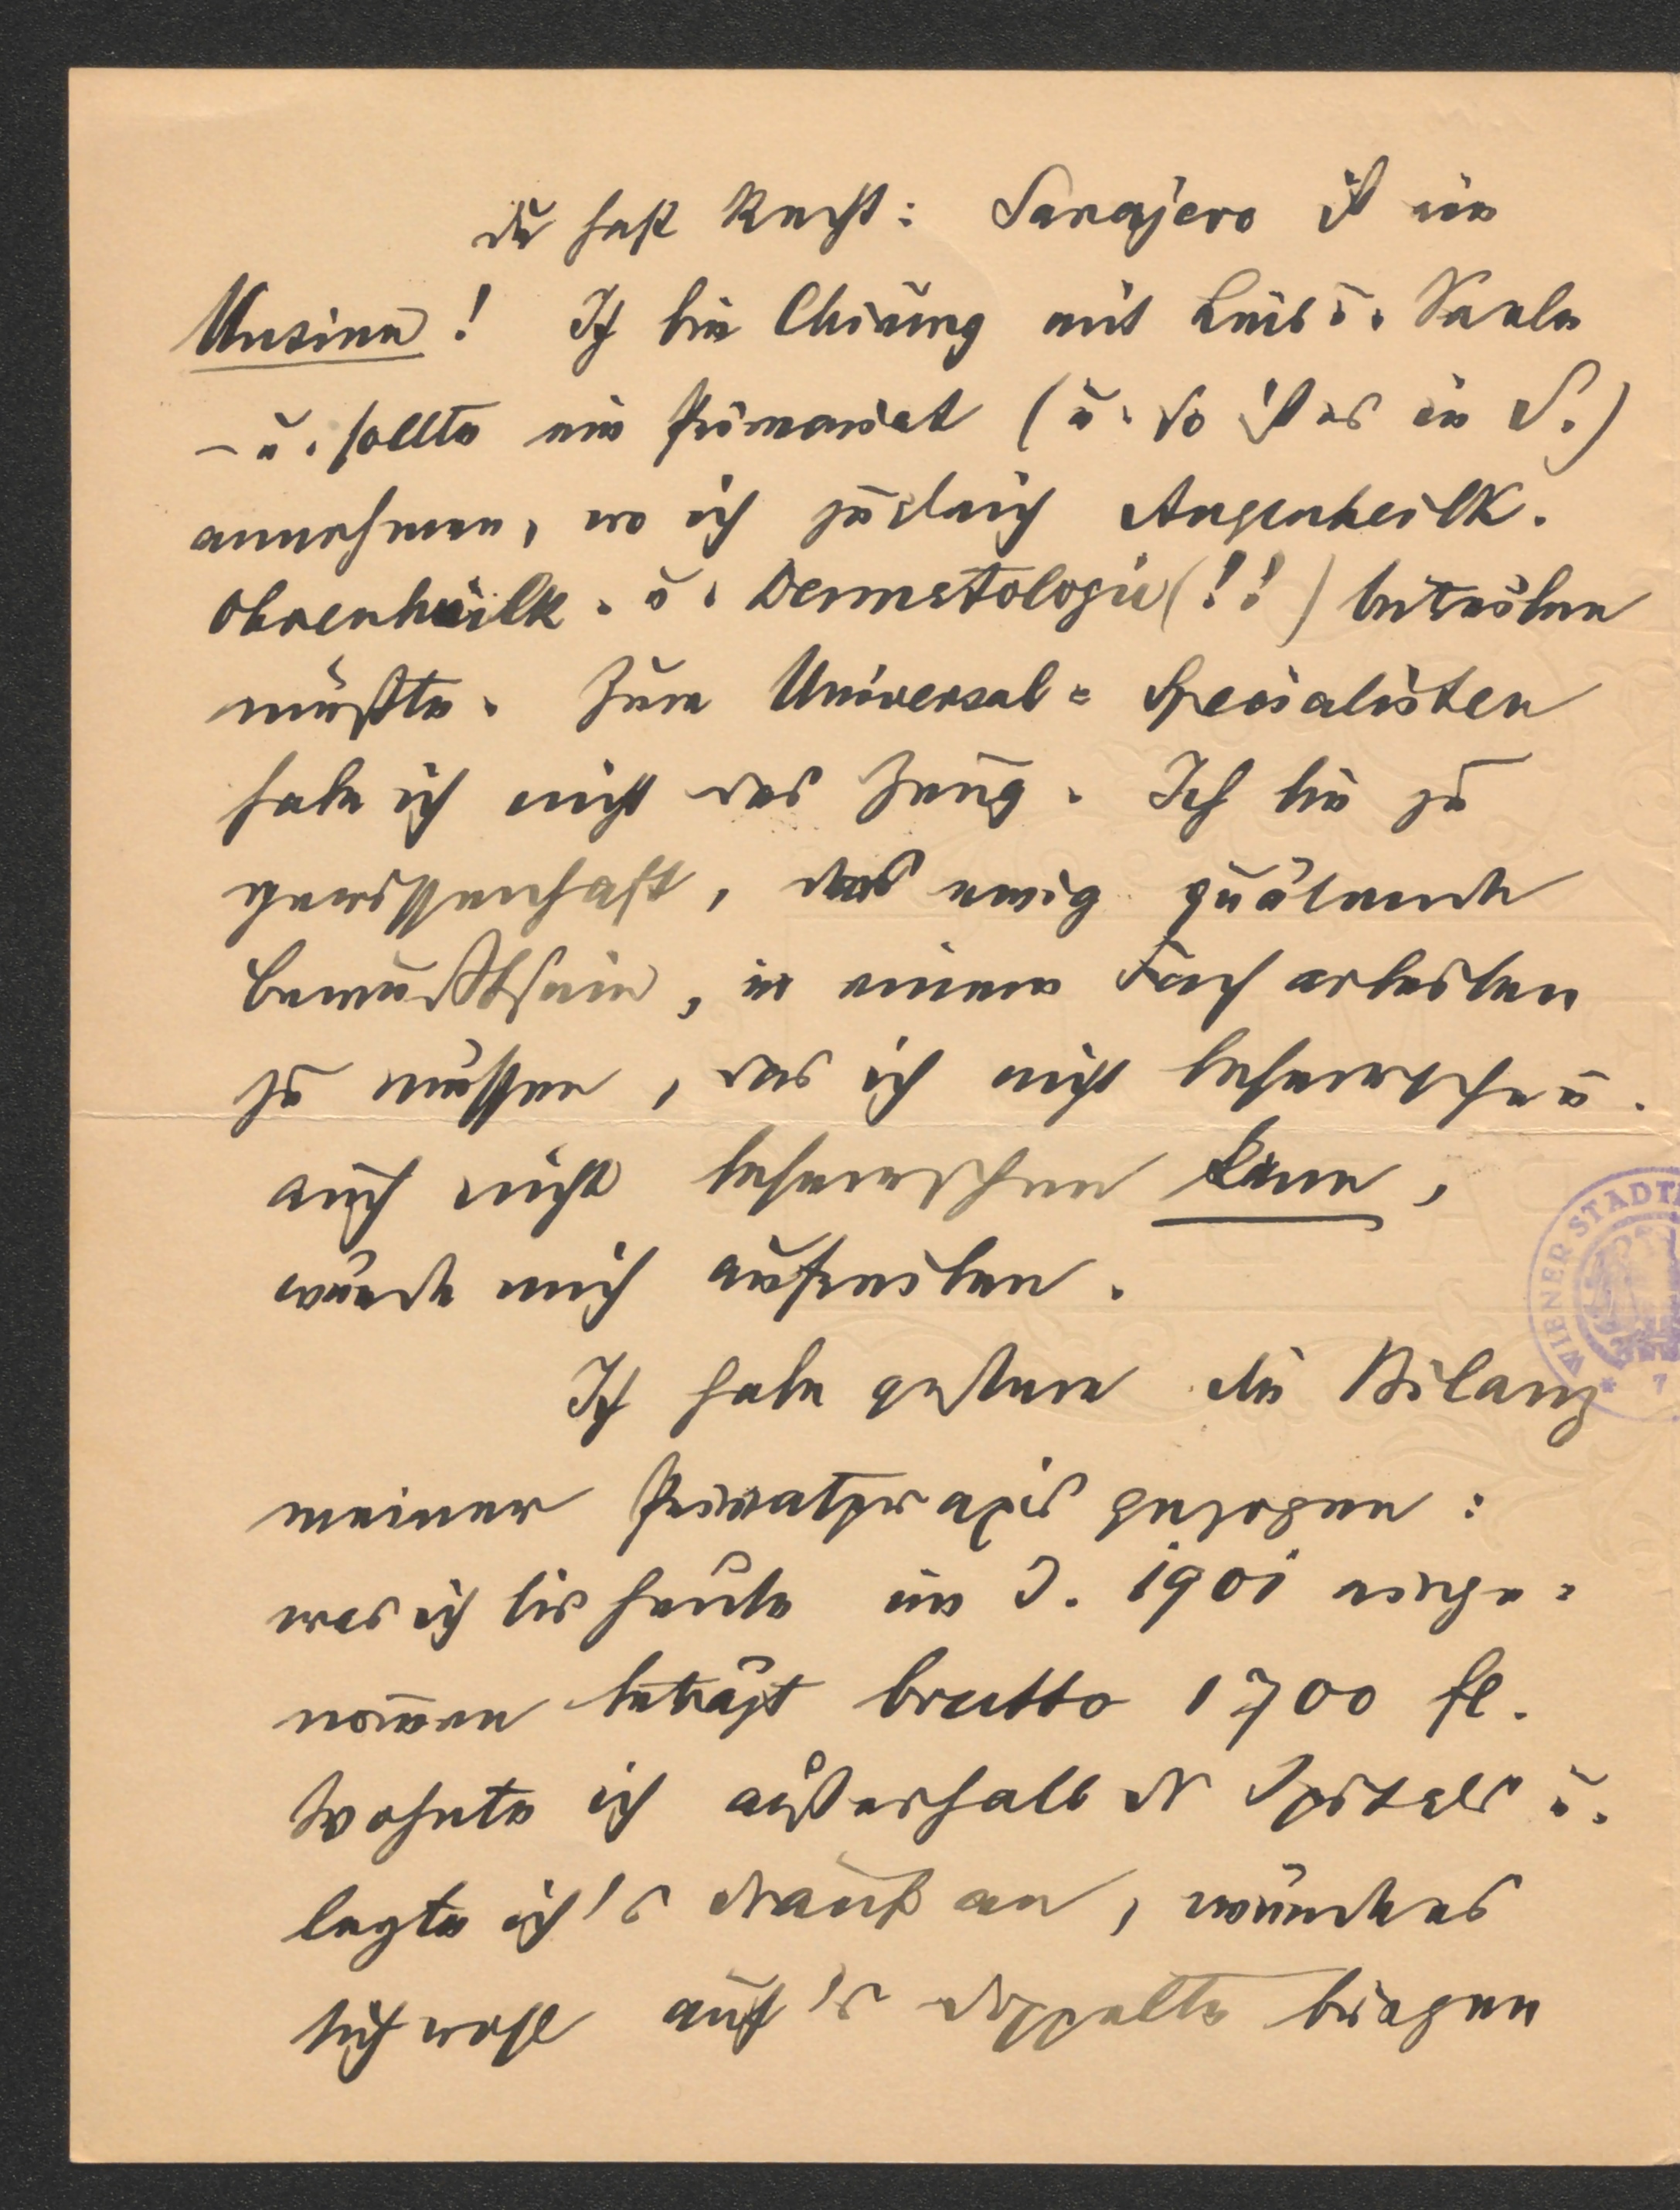 Du hast Recht: Sarajevo ist ein
Unsinn! Ich bin Chirurg mit Leib u. Seele
– u. sollte ein Primariat (u. so ist es in S.)
annehmen, wo ich zugleich Augenheilk.
Ohrenheilk. u. Dermatologie (!!) betreiben
müßte. Zum Universal=Specialisten
habe ich nicht das Zeug. Ich bin zu
gewissenhaft, das ewig quälende
Bewußtsein, in einem Fach arbeiten
zu müssen, das ich nicht beherrsche u.
auch nicht beherrschen kann,
würde mich aufreiben.
Ich habe gestern die Bilanz
meiner Privatpraxis gezogen:
was ich bis heute im J. 1901 einge=
nommen beträgt brutto 1700 fl.
Wohnte ich außerhalb des Spitals u.
legte ich's drauf an, würde es
sich wohl auf's doppelte bringen
WIENER STADT
* 7